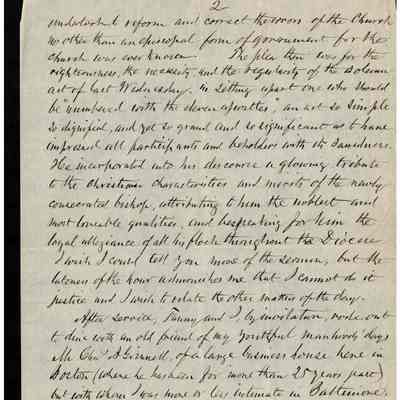 2
undertook to reform and correct the errors of the Church
no other than an episcopal form of government for the
church was ever known. The plea then was for the
righteousness, the necessity, and the regularity of the solemn
act of last Wednesday, in setting apart one who should
be "numbered with the eleven apostles" an act so simple
so dignified, and yet so grand and so significant as to have
impressed all participants and beholders with its
He incorporated into his discourse a glowing tribute
to the Christian characteristics and merits of the newly
consecrated bishop, attributing to him the noblest and
most loveable qualities, and bespeaking for him the
loyal allegiance of all his flock throughout the Diocese
I wish I could tell you more of the sermon, but the
lateness of the hour admonishes me that I cannot do it
justice and I wish to relate the other matters of the day.
After service, Fanny and I, by invitation, rode out
to dine with an old friend of my youthful manhood's days
Mr Chas A Grinnell, of a large business house here in
Boston (where he has been for more than 25 years past)
but with whom I was more or less intimate in Baltimore.